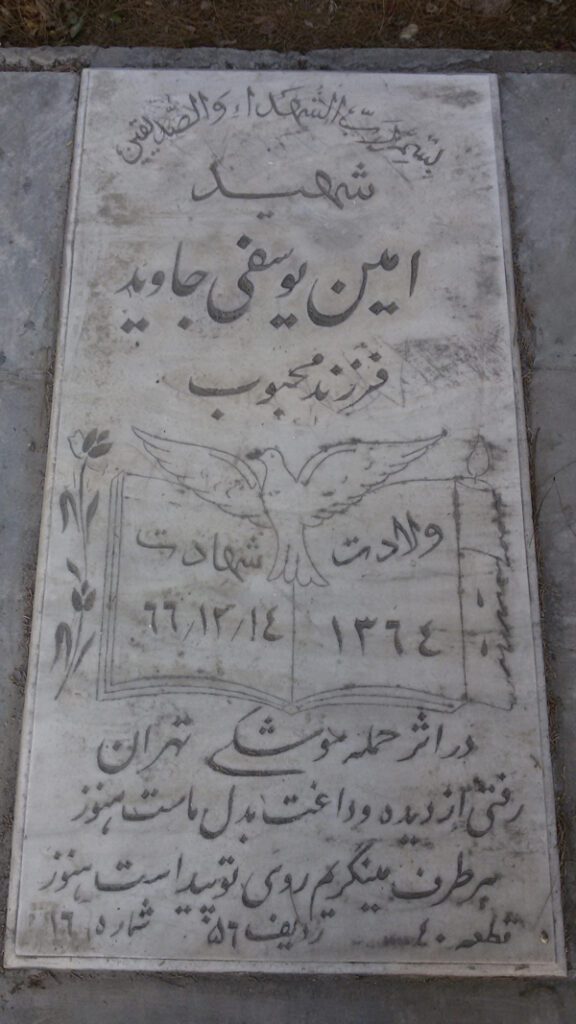 بسم رب الشهداء والصدیقین
شهید
امین یوسفی جاوید
فرزند محبوب
ولادت
۱۳۶۴
شهادت
۶۶/۱۲/۱۴
در اثر حمله موشکی تهران
رفتی از دیده و داغت بدل ماست هنوز
هر طرف مینگریم روی تو پیداست هنوز
قطعه ۴۰ ردیف ۵۶ شماره ۱۶